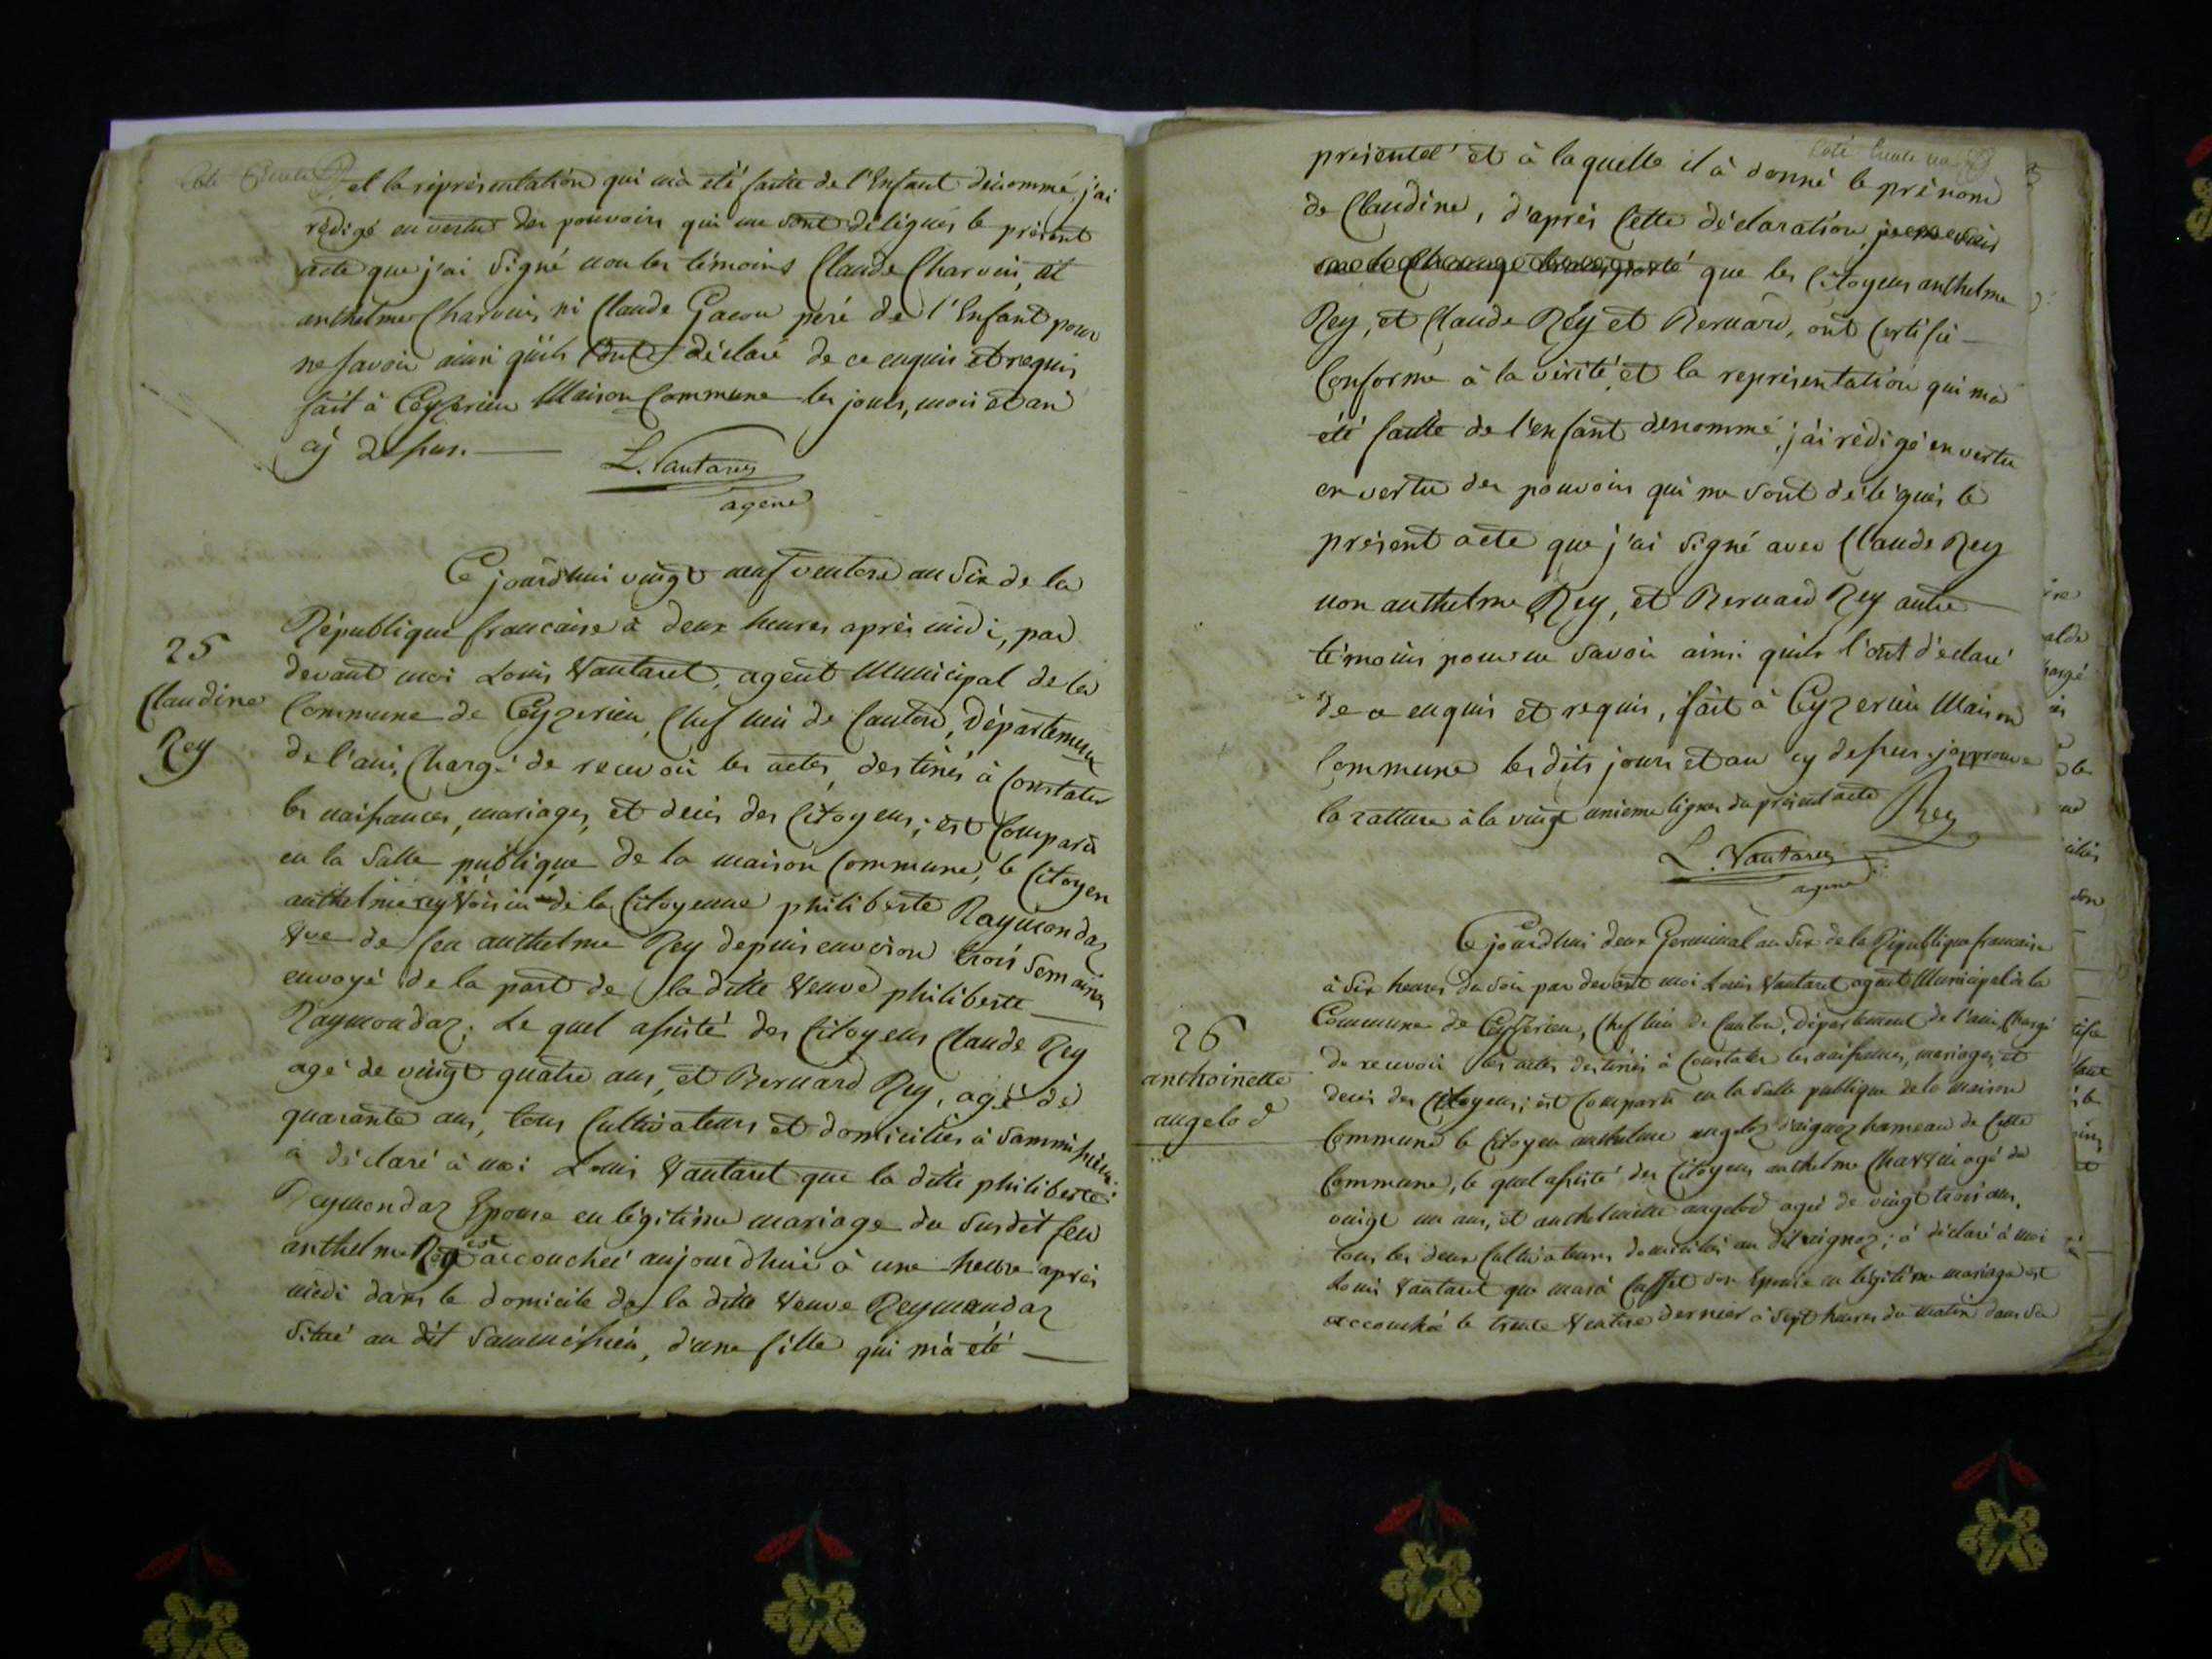 Coté trente
et la réprésentation qui m'à eté faitte de l'Enfant dénommé, j'ai
rédigé en vertu des pouvoirs qui me sont délégués le présent
acte que j'ai signé non les témoins Claude Charvin, et
anthelme Charvin, ni Claude Gacon peré de l'Enfant pour
ne savoir ainsi qu'ils l'ont déclaré de ce enquis et requis
fait à Ceyzerieu Maison Commune les jours, mois et an
cy dessus.
L. Vautaret
agent
Ce jourdhui vingt neuf ventose an six de la
République francaise à deux heures après midi, par
devant moi Louis Vautaret, agent Municipal de la
Commune de Ceyzerieu, Chef lieu de Canton, Département
de l'ain, Chargé de recevoir les actes destinés à Constater
les naissances, mariages, et decés des Citoyens; est Comparu
en la Salle publique de la maison Commune, le Citoyen
anthelme rey voisin de la Citoyenne philiberte Raymondaz
Vve de feu anthelme Rey depuis environ trois semaines
envoyé de la part de la ditte Veuve philiberte
Raymondaz. Le quel assisté des Citoyens Claude Rey
agé de vingt quatre ans, et Bernard Rey, agé de
quarante ans, tous Cultivateurs et domiciliés à
à déclaré à moi Louis Vautaret que la ditte philiberte
Reymondaz Epouse en légitime mariage du susdit feu
anthelme Rey est accouchée aujourdhui à une heure après
midi dans le domicile de la ditte Veuve Reymondaz
situé au dit, d'une fille qui m'à eté
25
Claudine
Rey
Coté trente un
présenteé et à laquelle il à donné le prénom
de Claudine, d'après Cette déclaration,
que les Citoyens anthelme
Rey, et Claude Rey et Bernard, ont Certifié
Conforme à la vérité, et la représentation qui m'à
été faitte de l'enfant denommé, j'ai rédigé en vertu
en vertu des pouvoirs qui me sont délégués le
présent acte que j'ai signé avec Claude Rey
non anthelme Rey, et Bernard Rey autre
témoins pour ne savoir ainsi quils l'ont déclaré
de ce enquis et requis, fait à Ceyzerieu Maison
Commune les dits jours et an cy dessus. j'approuve
la rature à la vingt unieme lignes du présent acte
Rey
L. Vautaret
agent
Ce jourdhui deux Germinal an Six de la République francaise
à Six heures du Soir par devant moi Louis Vautaret agent Municipal de la
Commune de Ceyzerieu, Chef lieu de Canton, Département de l'ain, Chargé
de recevoir les actes destinés à Constater les naissances, mariages, et
decés des Citoyens; est Comparu en la Salle publique de la maison
Commune le Citoyen anthelme angelod d'aignoz hameau de Cette
Commune, le quel assisté des Citoyens anthelme Charvin agé de
vingt un ans, et anthelmette angelod agée de vingt trois ans,
tous les deux Cultivateurs domiciliés au dit aignoz; à déclaré à moi
Louis Vautaret que son Epouse en légitime mariage est
accouchée le trente Ventose dernier à Sept heures du matin dans sa
26
anthoinette
angelod